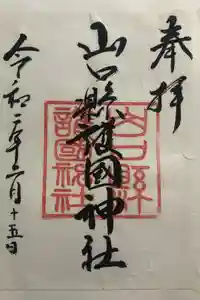 奉拝
山口縣護國神社
山口縣護國神社
令和二年二月十五日